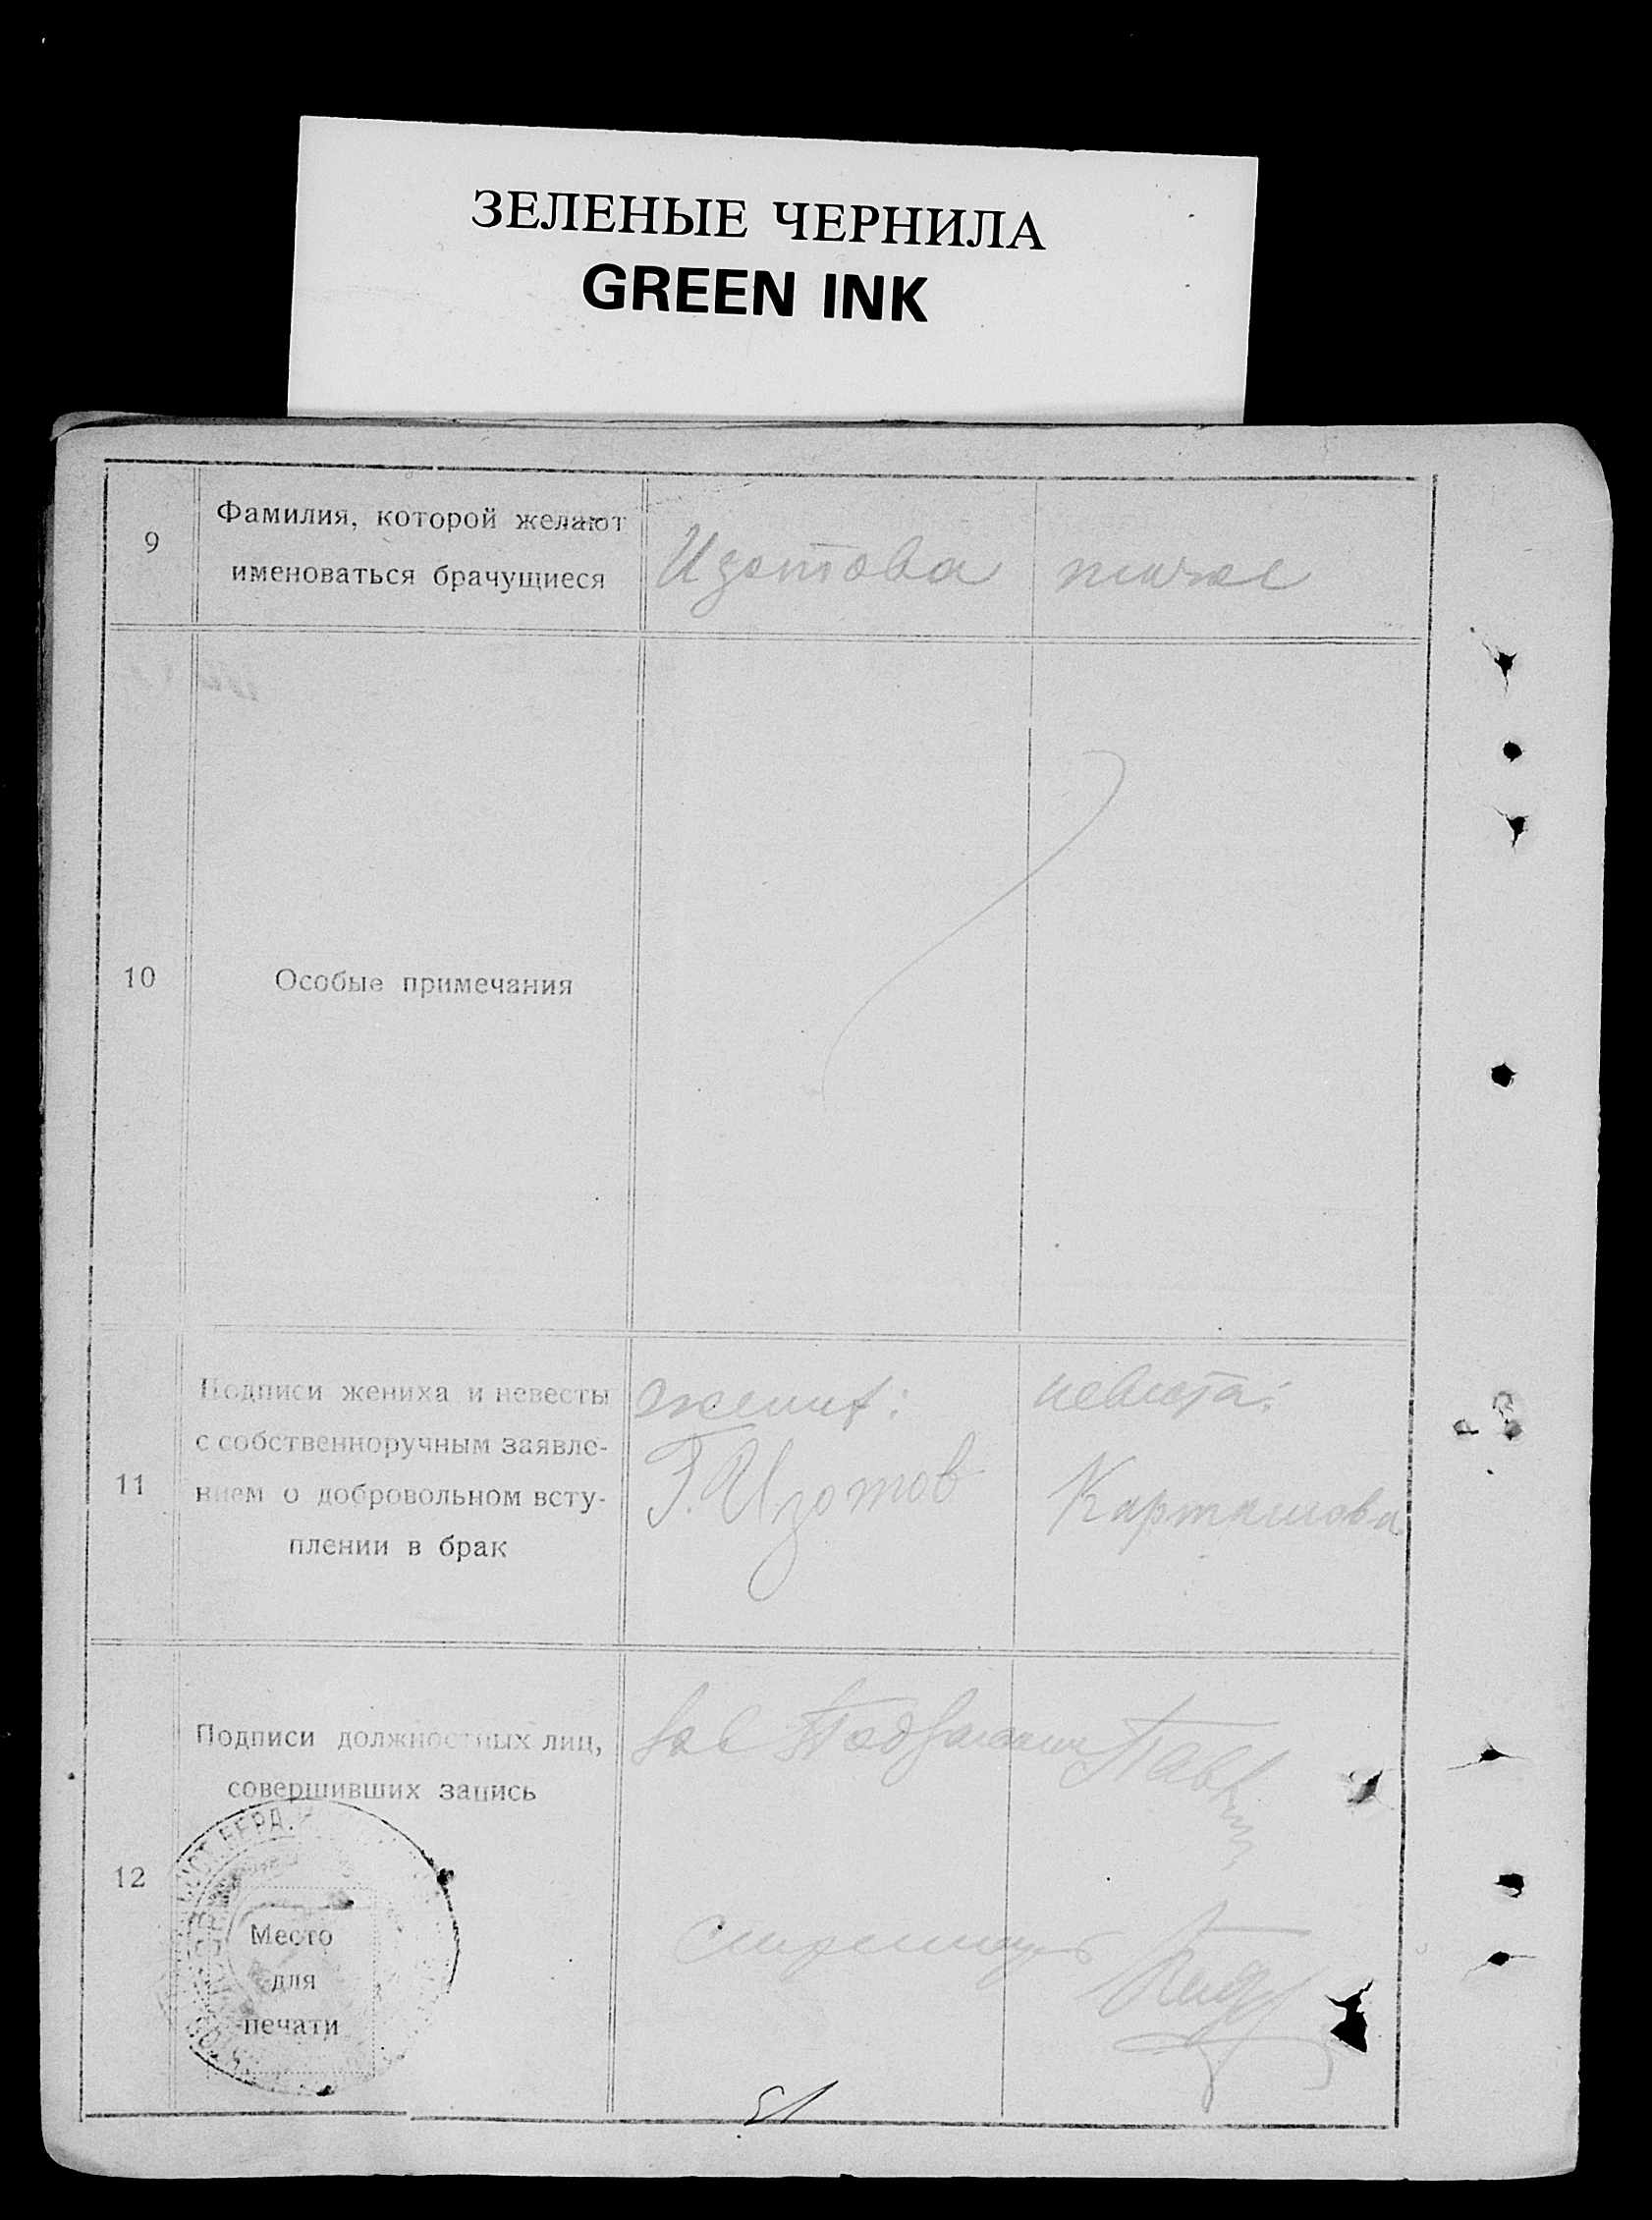 ЗЕЛЕНЫЕ ЧЕРНИЛА
GREEN INK
9
Фамилия, которой желают
именоваться брачущиеся
Изотова
10
Особые примечания
11
Подписи жениха и невесты
с собственноручным заявле-
нием о добровольном всту-
плении в брак
жених:
невеста:
Г. Изотов
Карташова
12
Подписи должностных лиц,
совершивших запись
Место
для
печати